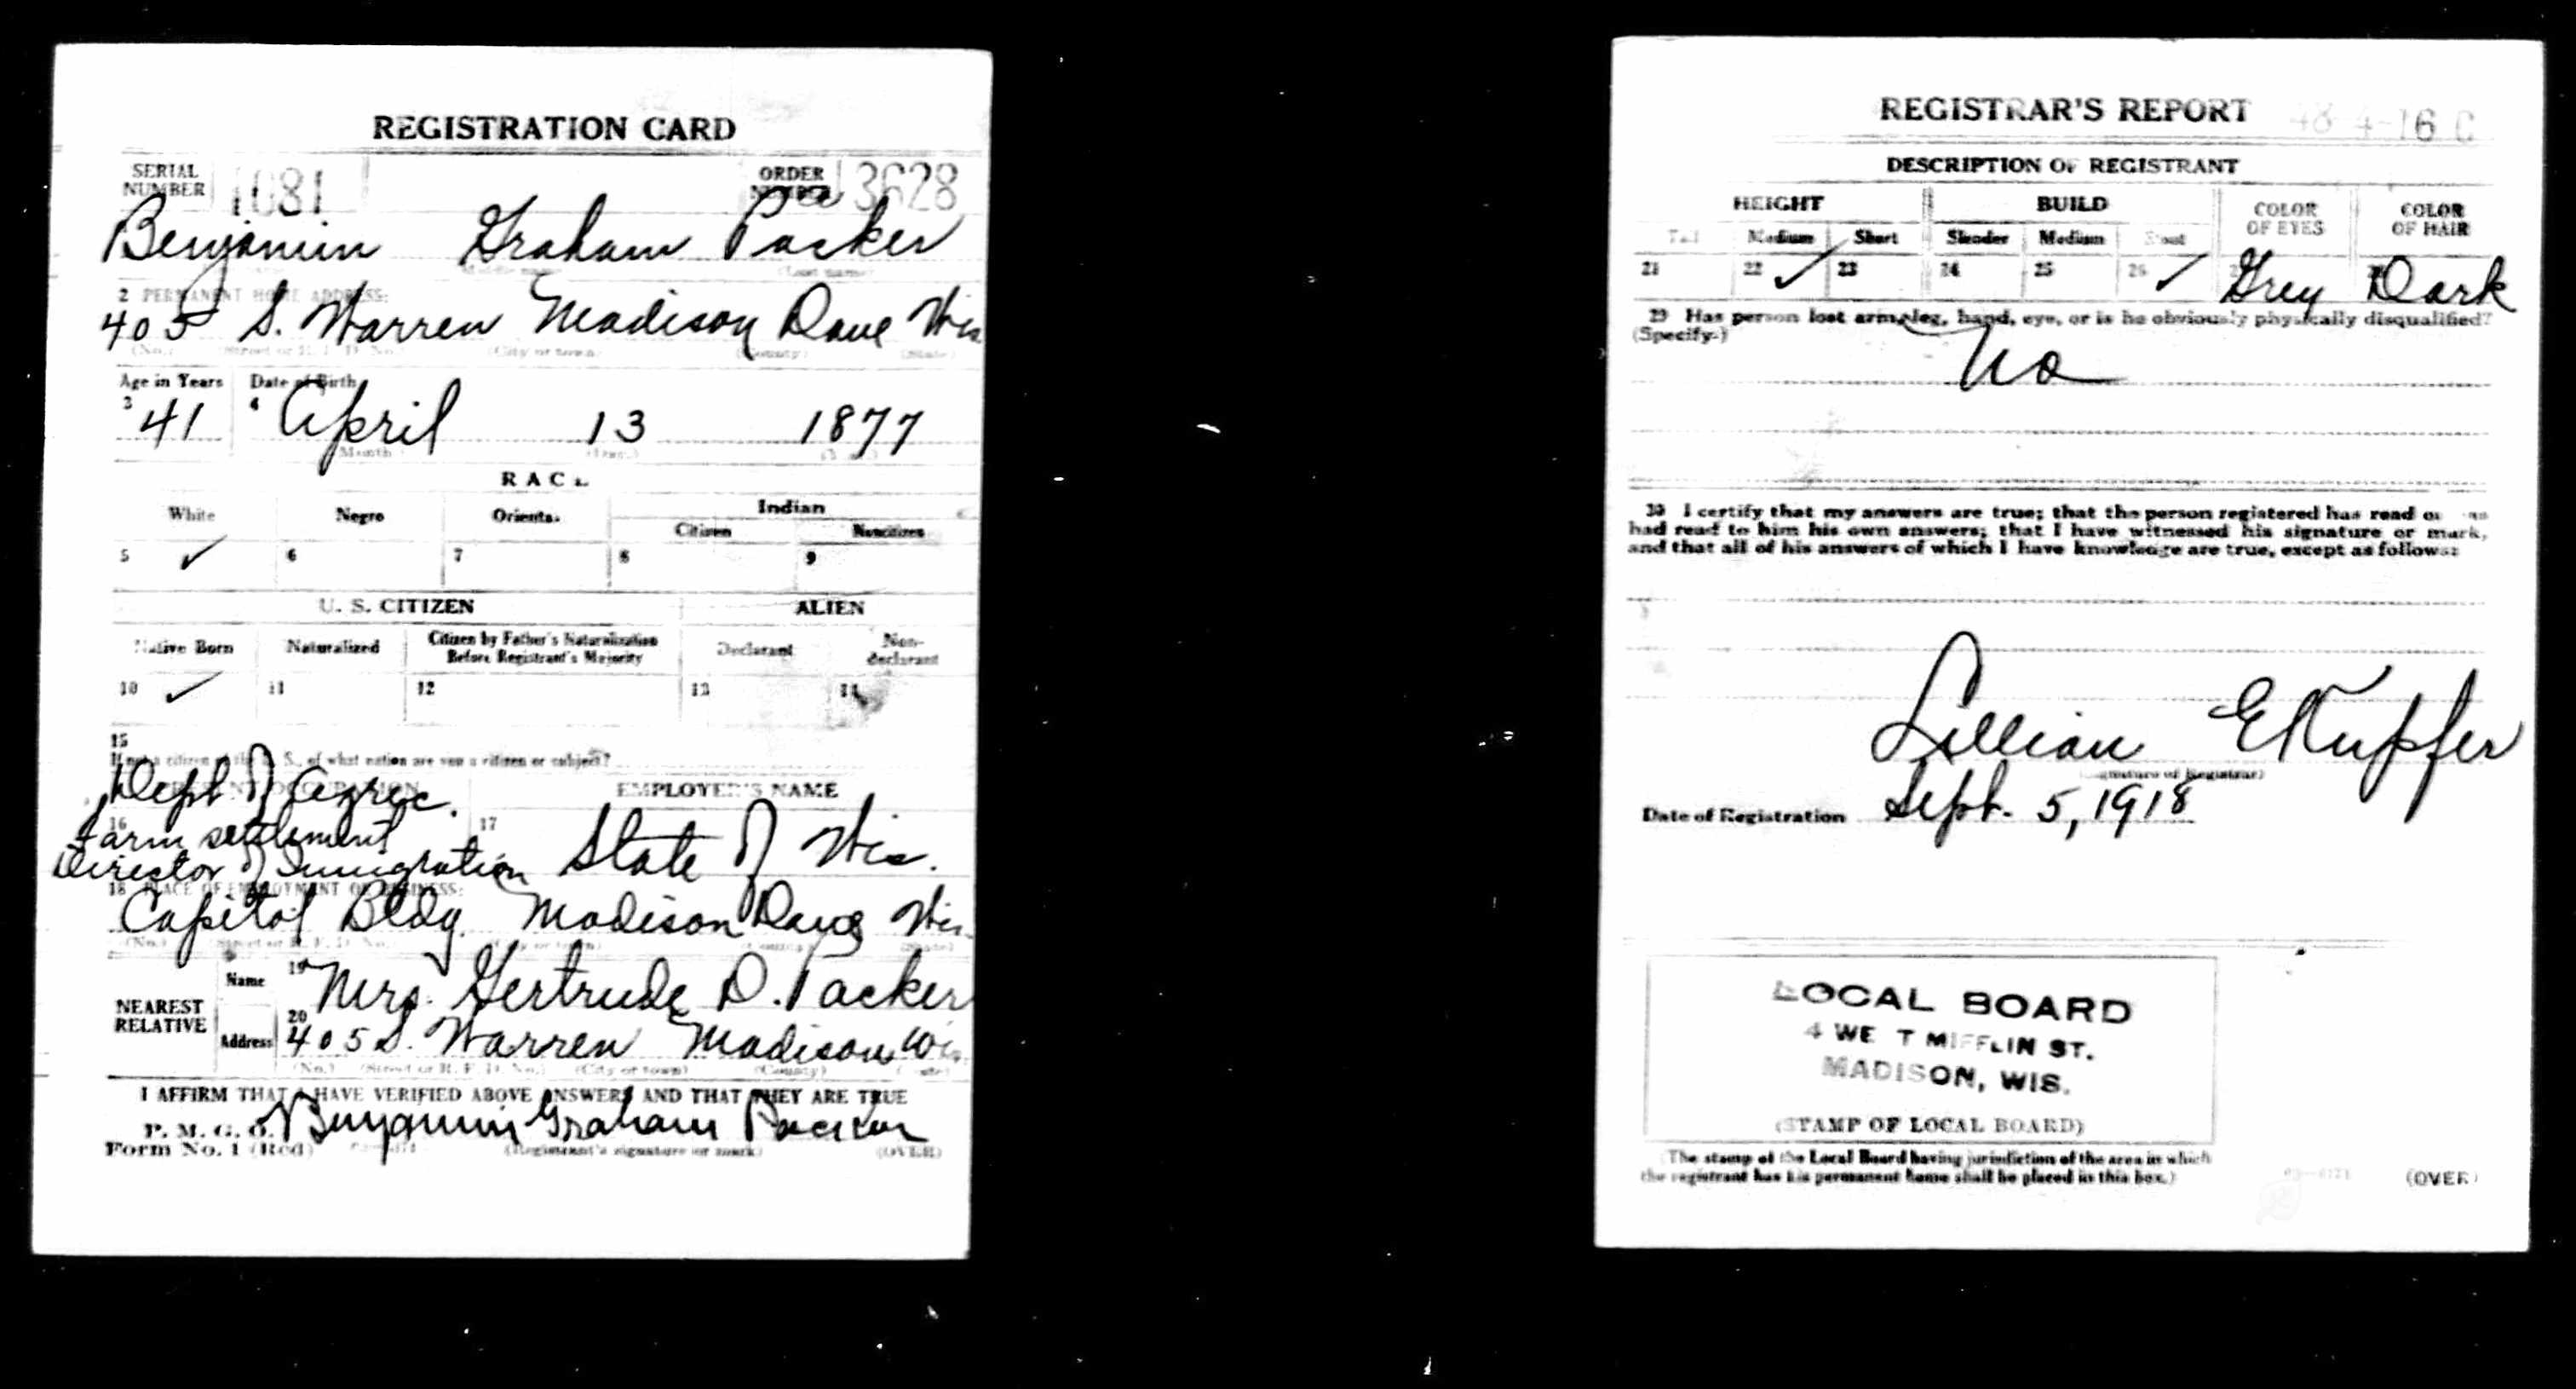 REGISTRATION CARD
SERIAL NUMBER 1081 ORDER NUMBER 3628
Benjamin Graham Packer
2 PERMANENT HOME ADDRESS:
405 S. Warren Madison Dane Wis
(No.) (Street or R. F. D. No.) (City or town) (County) (State)
Age in Years Date of Birth
3 41 4 April 13 1877
(Month) (Day.) (Year.)
RACE
White Negro Oriental Indian
Citizen Noncitizen
5 ✓ 6 7 8 9
U. S. CITIZEN ALIEN
Native Born Naturalized Citizen by Father's Naturalization Before Registrant's Majority Declarant Non-declarant
10 ✓ 11 12 13 14
15
If not a citizen of the U. S., of what nation are you a citizen or subject?
PRESENT OCCUPATION EMPLOYER'S NAME
Dept of Agric.
16 Farm settlement 17 State of Wis.
Director of Immigration
18 PLACE OF EMPLOYMENT OR BUSINESS:
Capitol Bldg. Madison Dane Wis.
(No.) (Street or R. F. D. No.) (City or town) (County) (State)
NEAREST RELATIVE
Name 19 Mrs. Gertrude D. Packer
Address 20 405 S. Warren Madison Wis.
(No.) (Street or R. F. D. No.) (City or town) (County) (State)
I AFFIRM THAT I HAVE VERIFIED ABOVE ANSWERS AND THAT THEY ARE TRUE
P. M. G. O.
Form No. 1 (Red) Benjamin Graham Packer
(Registrant's signature or mark) (OVER)
REGISTRAR'S REPORT
DESCRIPTION OF REGISTRANT
HEIGHT BUILD COLOR OF EYES COLOR OF HAIR
Tall Medium Short Slender Medium Stout
21 22 ✓ 23 24 25 26 ✓ Grey Dark
29 Has person lost arm, leg, hand, eye, or is he obviously physically disqualified?
(Specify.)
No
30 I certify that my answers are true; that the person registered has read or has
had read to him his own answers; that I have witnessed his signature or mark,
and that all of his answers of which I have knowledge are true, except as follows:
Lillian E Kupfer
(Signature of Registrar)
Date of Registration Sept. 5, 1918
LOCAL BOARD
4 WE T MIFFLIN ST.
MADISON, WIS.
(STAMP OF LOCAL BOARD)
(The stamp of the Local Board having jurisdiction of the area in which
the registrant has his permanent home shall be placed in this box.)
(OVER)